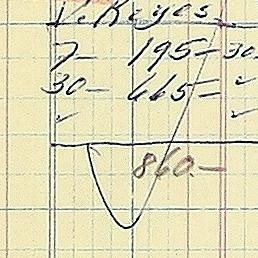 V. Keyes
7- 195- 30
30- 665-
860.-